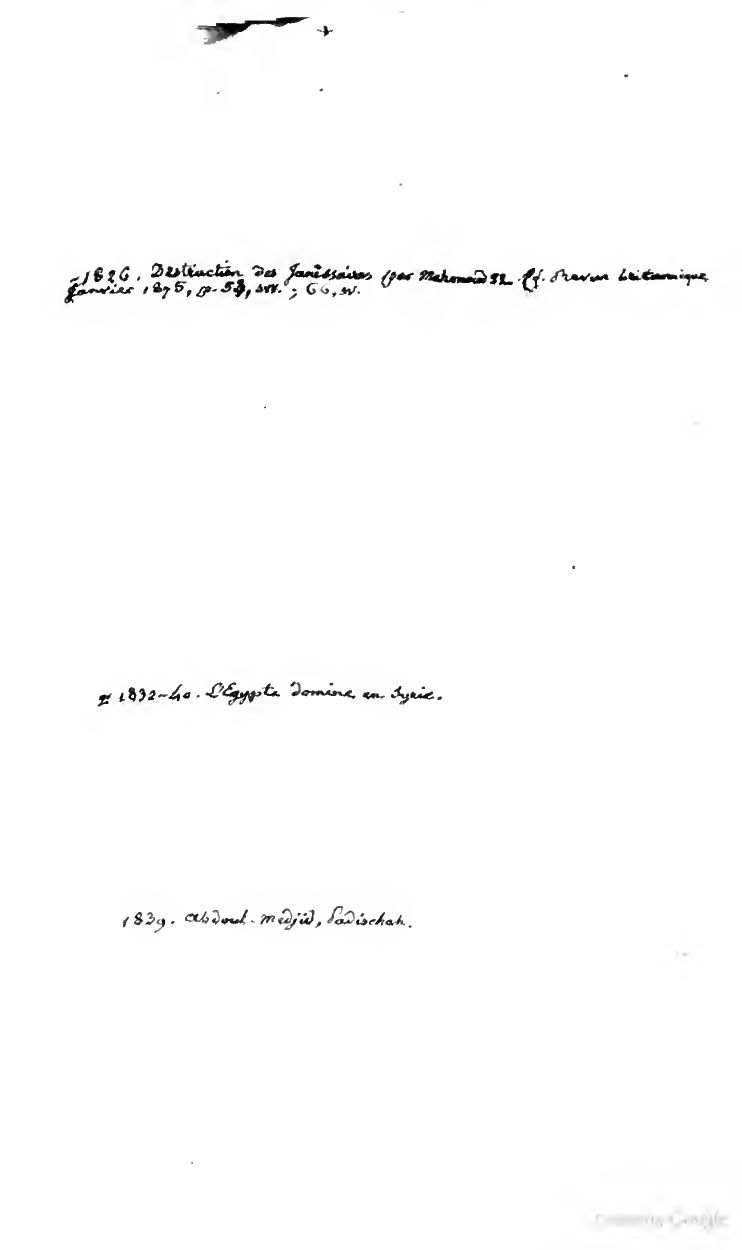 -1826. Destruction des Janissaires (par Mahmoud II. Cf. Revue britannique,
Janvier 1875, p. 53, sv. ; 66, sv.
1832-40. L'Égypte domine en Syrie.
1839. Abdoul-Medjid, Padischah.
Google